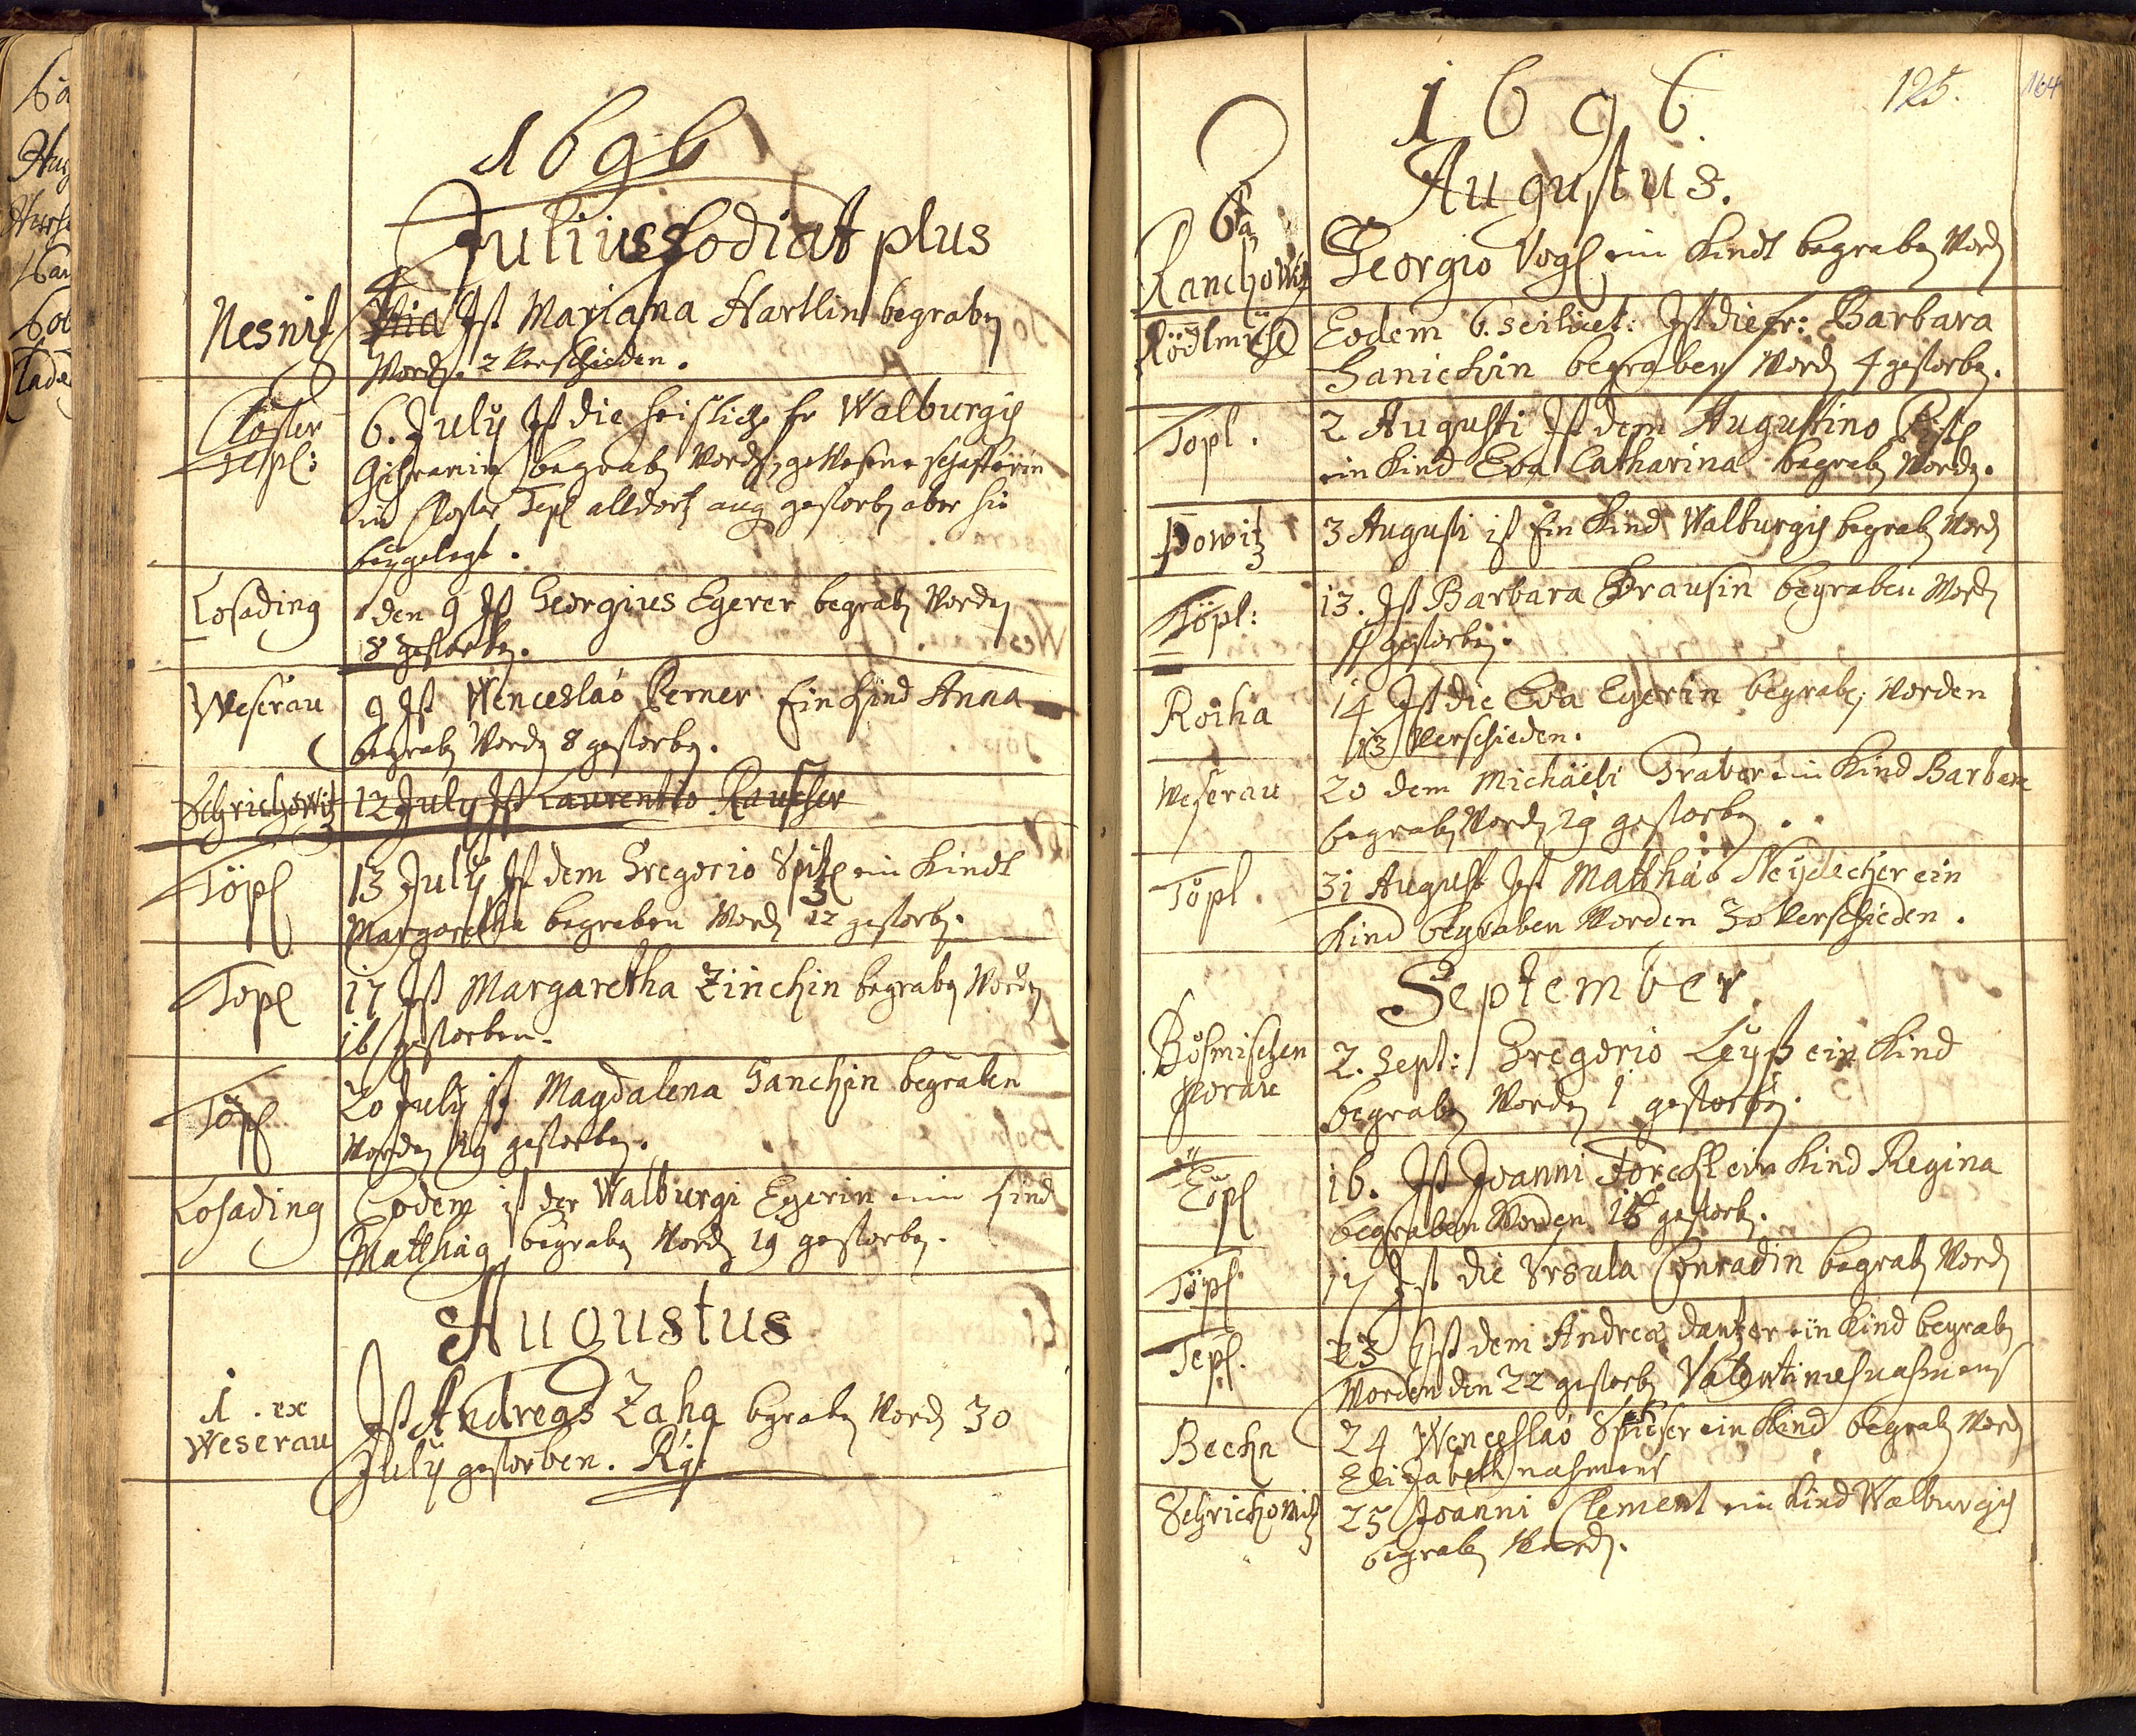 1696
Julius fodiat plus
Nesnitz Ist Mariana Hartlin begraben
Worden 2 verschieden.
Closter 6. July Ist die fr Walburgis
Tepl: begraben worden, gewesene schafferin
in Closter Tepl alldort auch gestorben aber hie
beygelegt.
Losading den 9 Ist Georgius Egerer begraben Worden
8 gestorben.
Weserau 9 Ist Wenceslao Perner Ein Kind Anna
begraben Worden 8 gestorben.
Schrickowitz 12 July Ist Laurentio Rauscher
Töpl 13 July Ist dem Gregorio Spitzl ein Kindt
Margaretha begraben Worden 12 gestorben.
Topl 17 Ist Margaretha Zirichin begraben Worden
16 gestorben.
Töpl 20 July ist Magdalena Hanchin begraben
Worden 19 gestorben.
Losading Eodem ist der Walburgi Egerin ein Kind
Matthäg begraben Worden 19 gestorben.
Augustus
1. ex Ist Andreas Zaha begraben Worden 30
Weserau July gestorben.
1696. 125. 164
Augustus.
6ta
Ranchowitz Georgio Vogl ein Kindt begraben Worden
Rödlmühl Eodem 6. scilicet: Ist die fr: Barbara
Hanickin begraben Worden 4 gestorben.
Topl. 2 Augusti Ist dem Augustino
ein Kind Eva Catharina begraben Worden.
Powitz 3 Augusti ist Ein Kind Walburgis begraben Worden
Töpl: 13. Ist Barbara Krausin begraben Worden
11 gestorben.
Roiha 14 Ist die Eva Egerin begraben Worden
13 Verschieden.
Weserau 20 dem Michäeli Graber ein Kind Barbara
begraben Worden 19 gestorben.
Töpl. 31 August Ist Matthäo Neydecker ein
Kind begraben Worden 30 Verschieden.
September.
Böhmischen 2. Sept: Gregorio Leyß ein Kind
Borau begraben Worden 1 gestorben.
Töpl 16. Ist Joanni ein Kind Regina
begraben Worden 15 gestorben.
Töpl. 17 Ist die Ursula Conradin begraben Worden
Tepl. 23 Ist dem Andreæ Dantzer ein Kind begraben
Worden den 22 gestorben nahmens
Beehn 24 Wenceslao ein Kind begraben Worden
Elizabeth nahmens
Schrickowitz 25 Joanni Clement ein Kind Walburgis
begraben Worden.